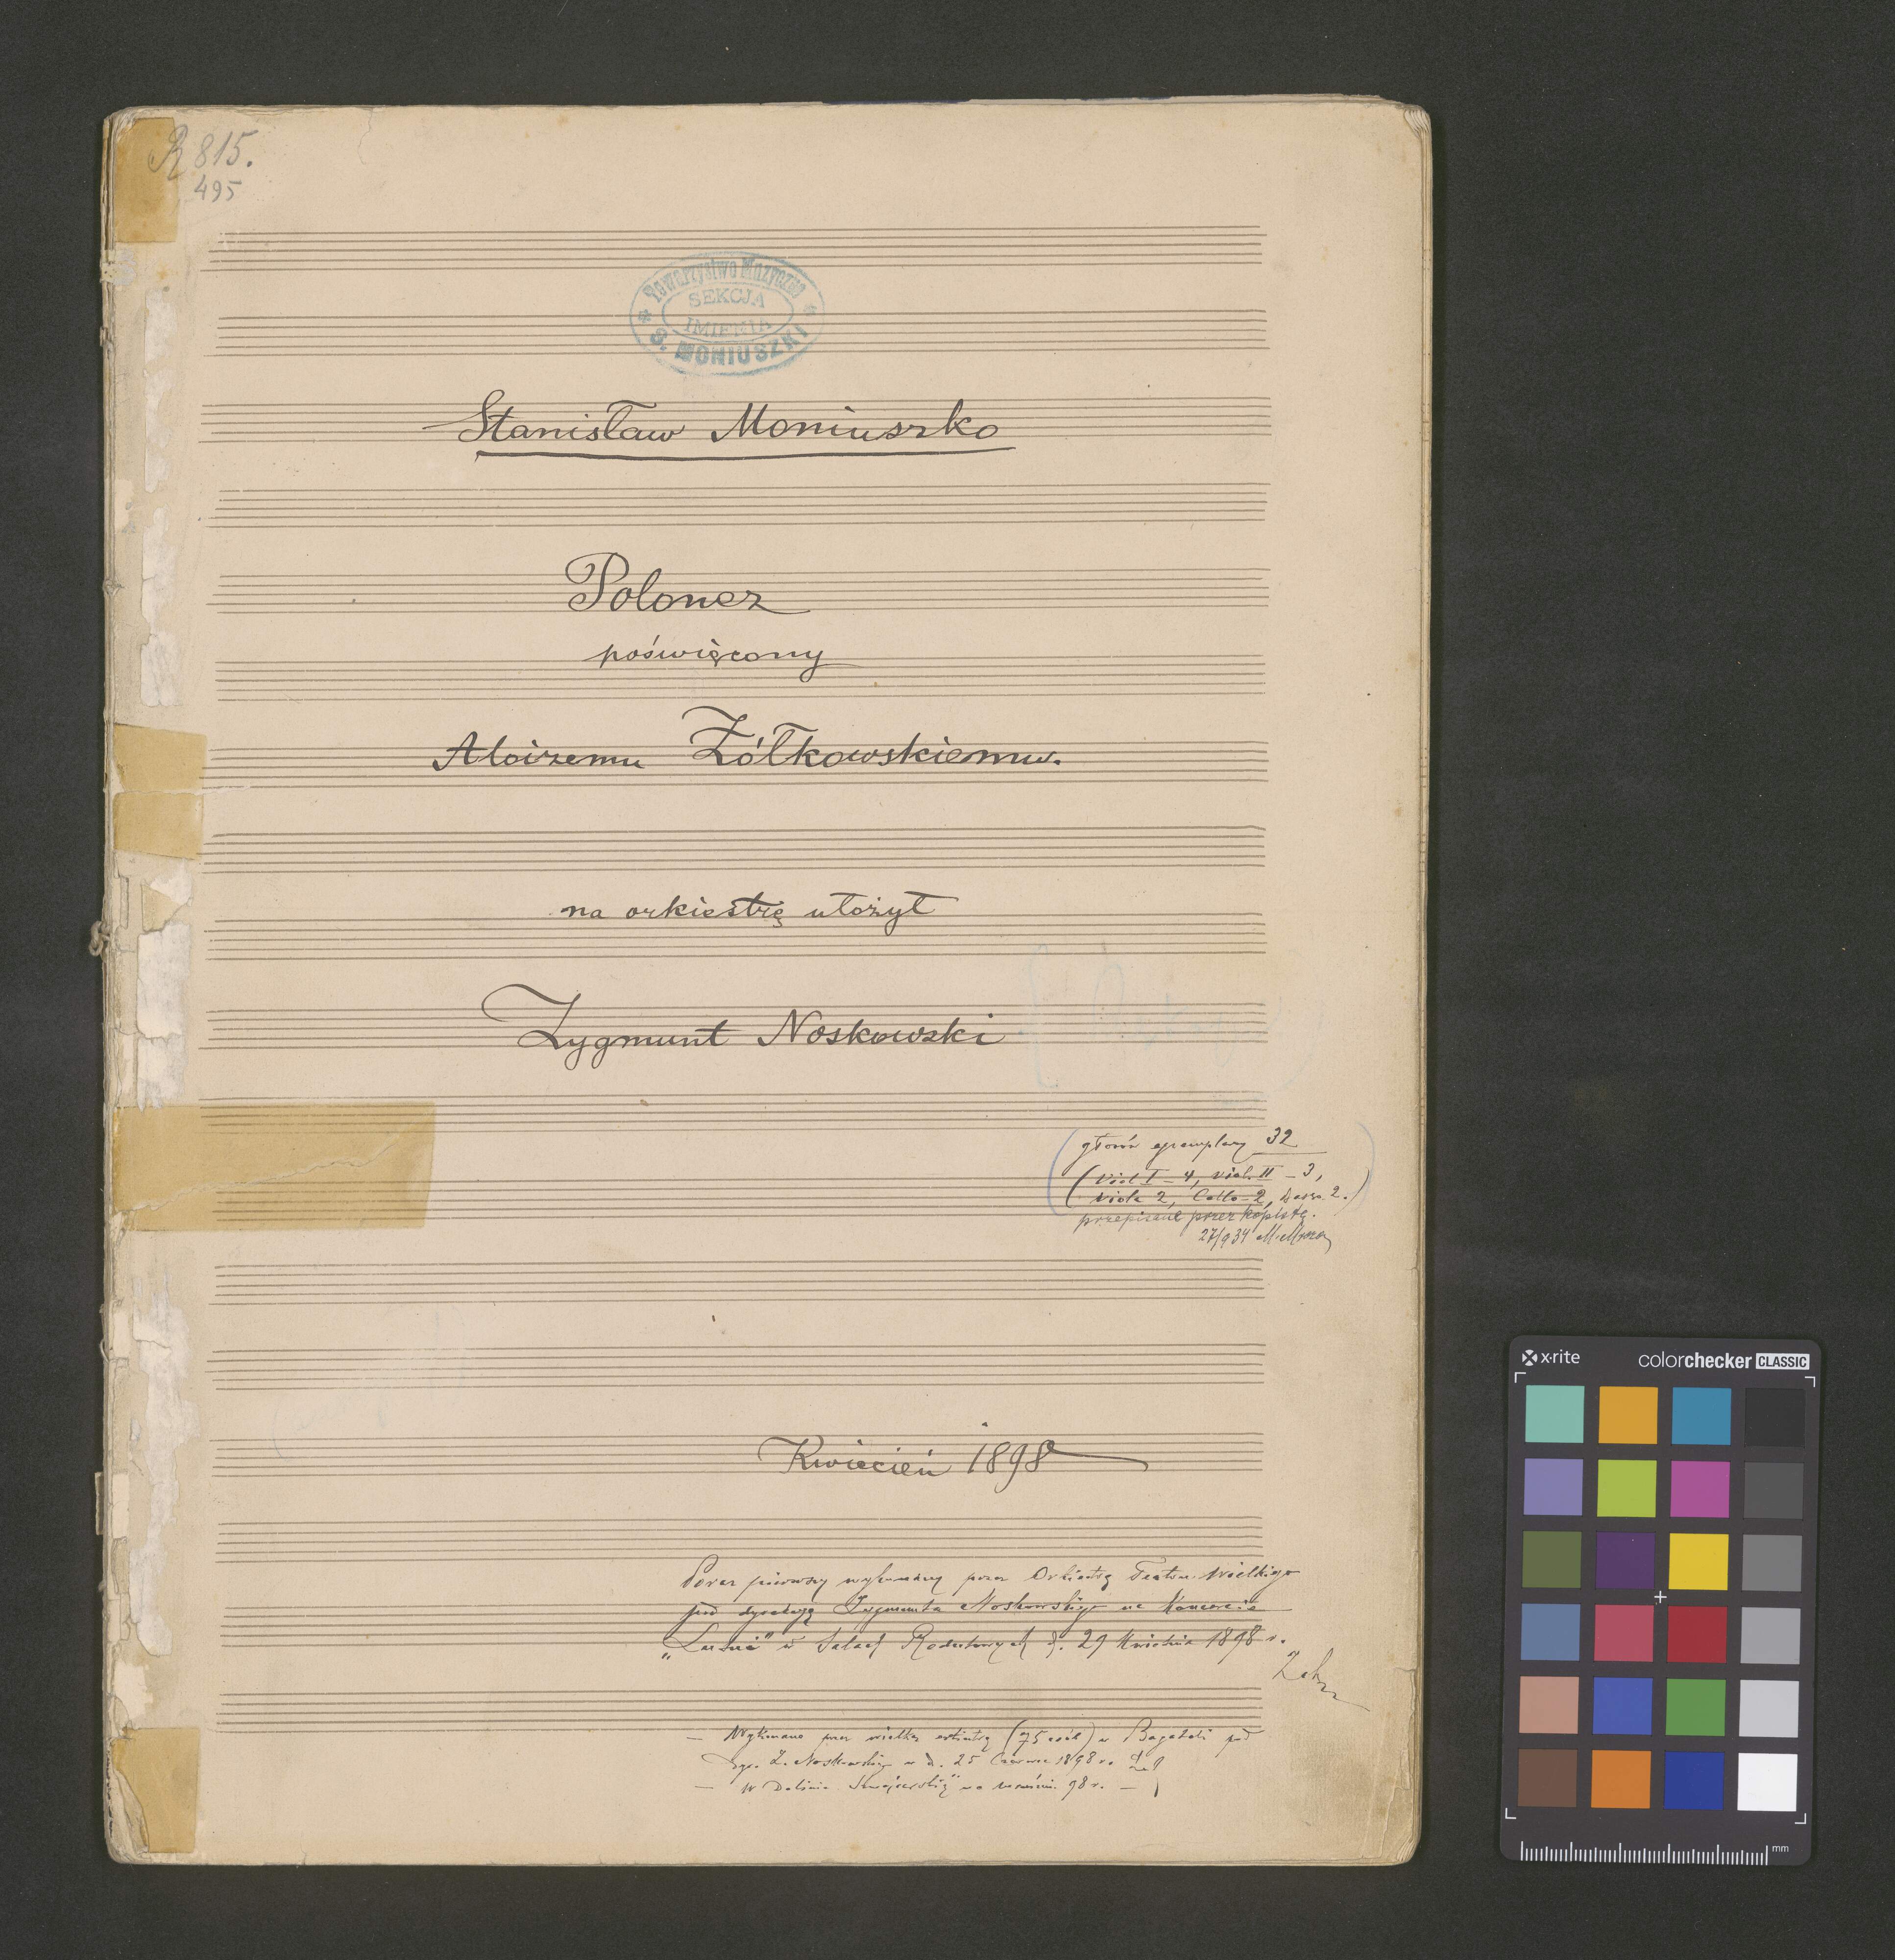 R 815.
495
Towarzystwo Muzyczne
SEKCJA
IMIENIA
S. MONIUSZKI
Stanisław Moniuszko
Polonez
poświęcony
Aloizemu Żółkowskiemu.
na orkiestrę ułożył
Zygmunt Noskowski
głosów egzemplarzy 32
(Viol I – 4, Viol. II – 3,
Viola 2, Cello – 2, Basso 2.)
przepisane przez kopistę.
27/9 34
Kwiecień 1898
Po raz pierwszy wykonany przez Orkiestrę Teatru Wielkiego
pod dyrekcją Zygmunta Noskowskiego na Koncercie
„Lutni" w Salach Redutowych d. 29 Kwietnia 1898 r.
— Wykonano przez wielką orkiestrę (75 osób) w Bagateli pod
dyr. Z. Noskowskiego w d. 25 Czerwca 1898 r.
— W Dolinie Szwajcarskiej 98 r. —
x·rite
colorchecker CLASSIC
mm